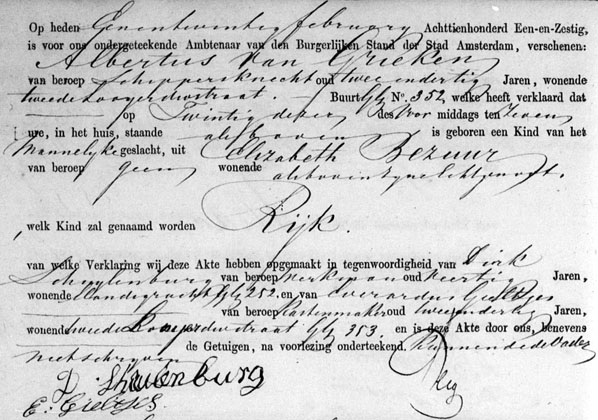 Op heden Een en twintig february Achttienhonderd Een-en-Zestig,
is voor ons ondergeteekende Ambtenaar van den Burgerlijken Stand der Stad Amsterdam, verschenen:
Albertus Van Grieken
van beroep Schippersknecht oud twee en dertig Jaren, wonende
tweede dwarsstraat. Buurt No. 352, welke heeft verklaard dat
op Twintig dezer des Voor middags ten Zeven
ure, in het huis, staande als boven is geboren een Kind van het
Mannelijke geslacht, uit Elizabeth Bezuur
van beroep geen wonende als boven zijn echtgenoot.
welk Kind zal genaamd worden Rijk.
van welke Verklaring wij deze Akte hebben opgemaakt in tegenwoordigheid van Dirk
Schuylenburg van beroep oud Jaren,
wonende 252. en van Everardus
van beroep Kastenmaker oud twee en dertig Jaren,
wonende tweede dwarsstraat 353. en is deze Akte door ons, benevens
de Getuigen, na voorlezing onderteekend. Kunnende de Vader
niet schrijven
D. Schulenburg
E.